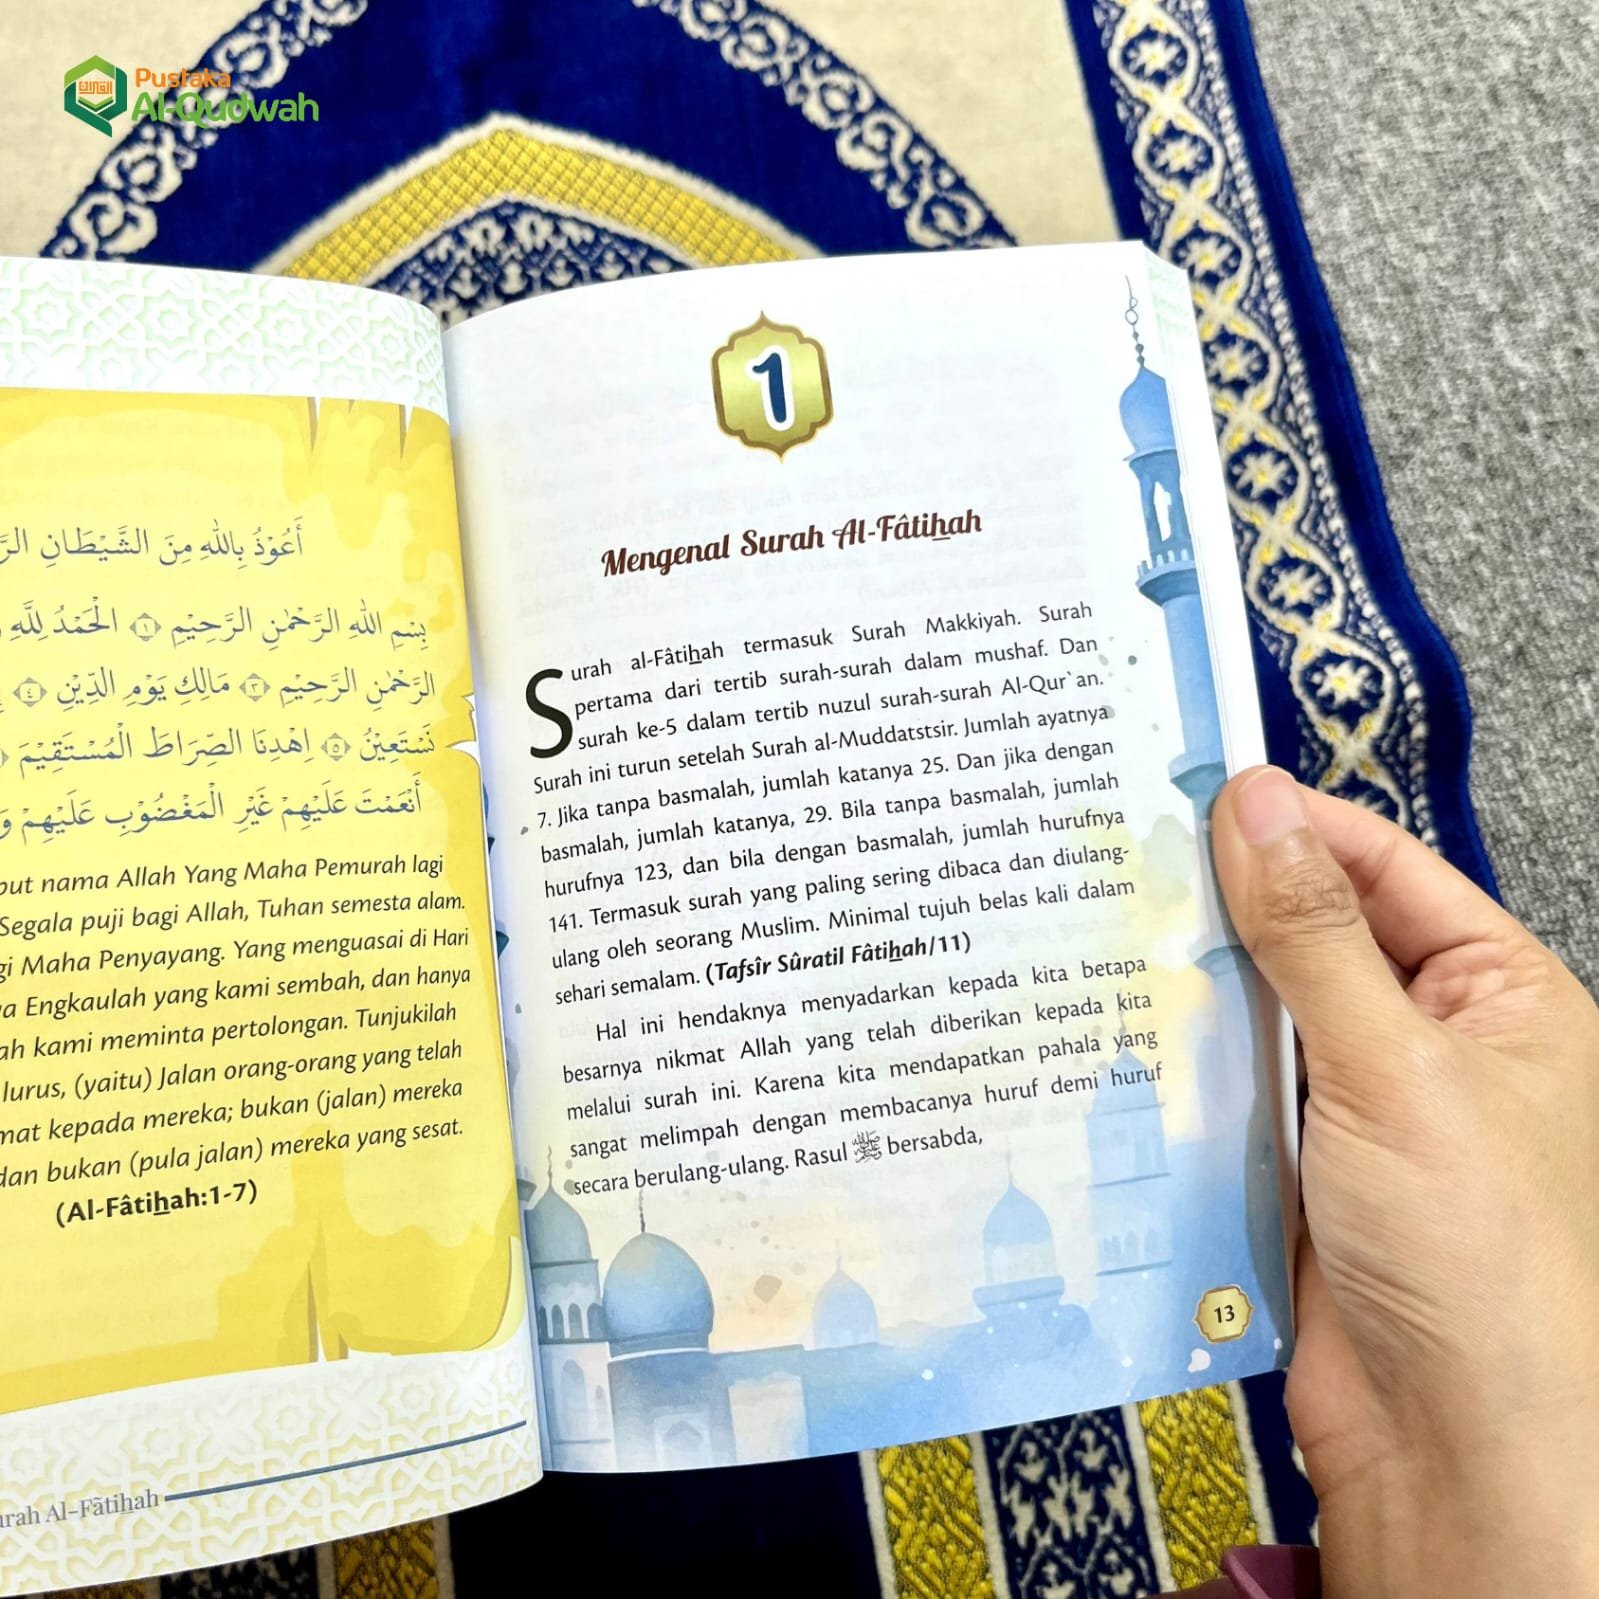 Pustaka
Al-Qudwah
أَعُوْذُ بِاللهِ مِنَ الشَّيْطَانِ
بِسْمِ اللهِ الرَّحْمٰنِ الرَّحِيْمِ ١ الْحَمْدُ لِلَّهِ
الرَّحْمٰنِ الرَّحِيْمِ ٣ مَالِكِ يَوْمِ الدِّيْنِ ٤
نَسْتَعِيْنُ ٥ اِهْدِنَا الصِّرَاطَ الْمُسْتَقِيْمَ
أَنْعَمْتَ عَلَيْهِمْ غَيْرِ الْمَغْضُوْبِ عَلَيْهِمْ
nama Allah Yang Maha Pemurah lagi
Segala puji bagi Allah, Tuhan semesta alam.
Maha Penyayang. Yang menguasai di Hari
Engkaulah yang kami sembah, dan hanya
kami meminta pertolongan. Tunjukilah
lurus, (yaitu) Jalan orang-orang yang telah
kepada mereka; bukan (jalan) mereka
dan bukan (pula jalan) mereka yang sesat.
(Al-Fâtiẖah:1-7)
Al-Fãtiẖah
1
Mengenal Surah Al-Fâtiẖah
Surah al-Fâtiẖah termasuk Surah Makkiyah. Surah
pertama dari tertib surah-surah dalam mushaf. Dan
surah ke-5 dalam tertib nuzul surah-surah Al-Qur`an.
Surah ini turun setelah Surah al-Muddatstsir. Jumlah ayatnya
7. Jika tanpa basmalah, jumlah katanya 25. Dan jika dengan
basmalah, jumlah katanya, 29. Bila tanpa basmalah, jumlah
hurufnya 123, dan bila dengan basmalah, jumlah hurufnya
141. Termasuk surah yang paling sering dibaca dan diulang-
ulang oleh seorang Muslim. Minimal tujuh belas kali dalam
sehari semalam. (Tafsîr Sûratil Fâtiẖah/11)
Hal ini hendaknya menyadarkan kepada kita betapa
besarnya nikmat Allah yang telah diberikan kepada kita
melalui surah ini. Karena kita mendapatkan pahala yang
sangat melimpah dengan membacanya huruf demi huruf
secara berulang-ulang. Rasul ﷺ bersabda,
13